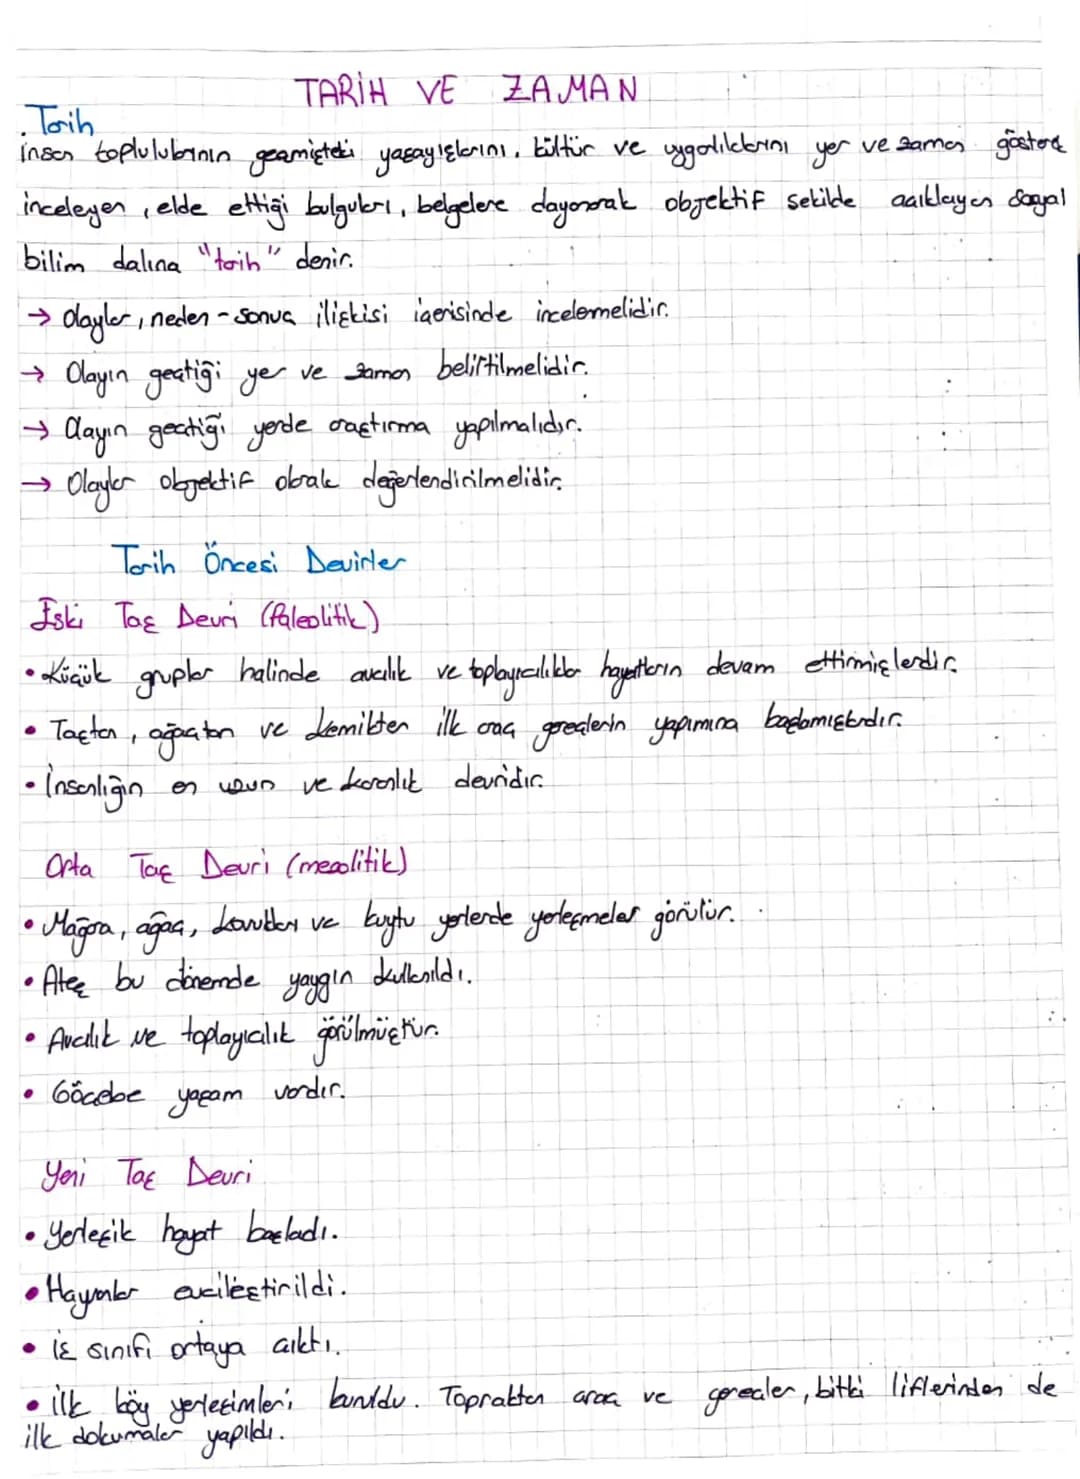 TARİH VE ZAMAN
. Tarih
insan topluluklarının geçmişteki yaşayışlarını, kültür ve uygarlıklarını yer ve zaman göstererek
inceleyen, elde ettiği bulguları, belgelere dayanarak objektif şekilde açıklayan sosyal
bilim dalına "tarih" denir.
→ Olaylar, neden-sonuç ilişkisi içerisinde incelemelidir.
→ Olayın geçtiği yer ve zaman belirtilmelidir.
→ Olayın geçtiği yerde araştırma yapılmalıdır.
→ Olaylar objektif olarak değerlendirilmelidir.
Tarih Öncesi Devirler
Eski Taş Devri (Paleolitik)
• Küçük gruplar halinde avcılık ve toplayıcılıkla hayatların devam ettirmişlerdir.
• Taştan, ağaçtan ve kemikten ilk araç gereçlerin yapımına başlamışlardır.
• İnsanlığın en uzun ve karanlık devridir.
Orta Taş Devri (mezolitik)
• Mağara, ağaç, kovukları ve kuytu yerlerde yerleşmeler görülür.
• Ateş bu dönemde yaygın kullanıldı.
• Avcılık ve toplayıcılık görülmüştür.
• Göçebe yaşam vardır.
Yeni Taş Devri
• Yerleşik hayat başladı.
• Hayvanlar evcilleştirildi.
• İş sınıfı ortaya çıktı.
• İlk köy yerleşimleri kuruldu. Topraktan araç ve gereçler, bitki liflerinden de
ilk dokumalar yapıldı.